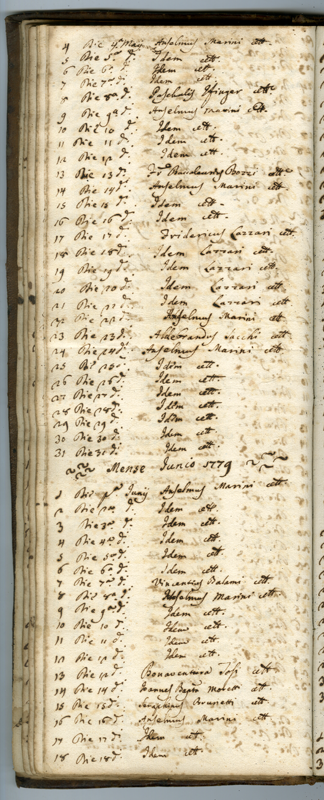 4 Die 4ª Maij Anselmus Marini cett.
5 Die 5ª d. Idem cett.
6 Die 6ª d. Idem cett.
7 Die 7ª d. Idem cett.
8 Die 8ª d. Paschalis cett.
9 Die 9ª d. Anselmus Marini cett.
10 Die 10 d. Idem cett.
11 Die 11 d. Idem cett.
12 Die 12 d. Idem cett.
13 Die 13 d. cett.
14 Die 14 d. Anselmus Marini cett.
15 Die 15 d. Idem cett.
16 Die 16 d. Idem cett.
17 Die 17 d. Fridericus Lazzari cett.
18 Die 18 d. Idem Lazzari cett.
19 Die 19 d. Idem Lazzari cett.
20 Die 20 d. Idem Lazzari cett.
21 Die 21 d. Idem Lazzari cett.
22 Die 22 d. Anselmus Marini cett.
23 Die 23 d. Aldebrandus Sacchi cett.
24 Die 24 d. Anselmus Marini cett.
25 Die 25 d. Idem cett.
26 Die 26 d. Idem cett.
27 Die 27 d. Idem cett.
28 Die 28 d. Idem cett.
29 Die 29 d. Idem cett.
30 Die 30 d. Idem cett.
31 Die 31 d. Idem cett.
Mense Junio 1779
1 Die 1ª Junij Anselmus Marini cett.
2 Die 2ª d. Idem cett.
3 Die 3ª d. Idem cett.
4 Die 4ª d. Idem cett.
5 Die 5ª d. Idem cett.
6 Die 6ª d. Idem cett.
7 Die 7ª d. Vincentius Balami cett.
8 Die 8ª d. Anselmus Marini cett.
9 Die 9ª d. Idem cett.
10 Die 10 d. Idem cett.
11 Die 11 d. Idem cett.
12 Die 12 d. Idem cett.
13 Die 13 d. Bonaventura Tosi cett.
14 Die 14 d. Joannes Bapta cett.
15 Die 15 d. cett.
16 Die 16 d. Anselmus Marini cett.
17 Die 17 d. Idem cett.
18 Die 18 d. Idem cett.